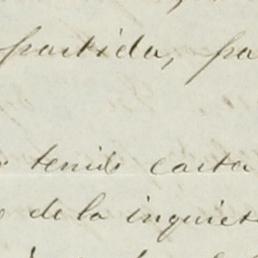 partida, pa
tenido carta
de la inquiet